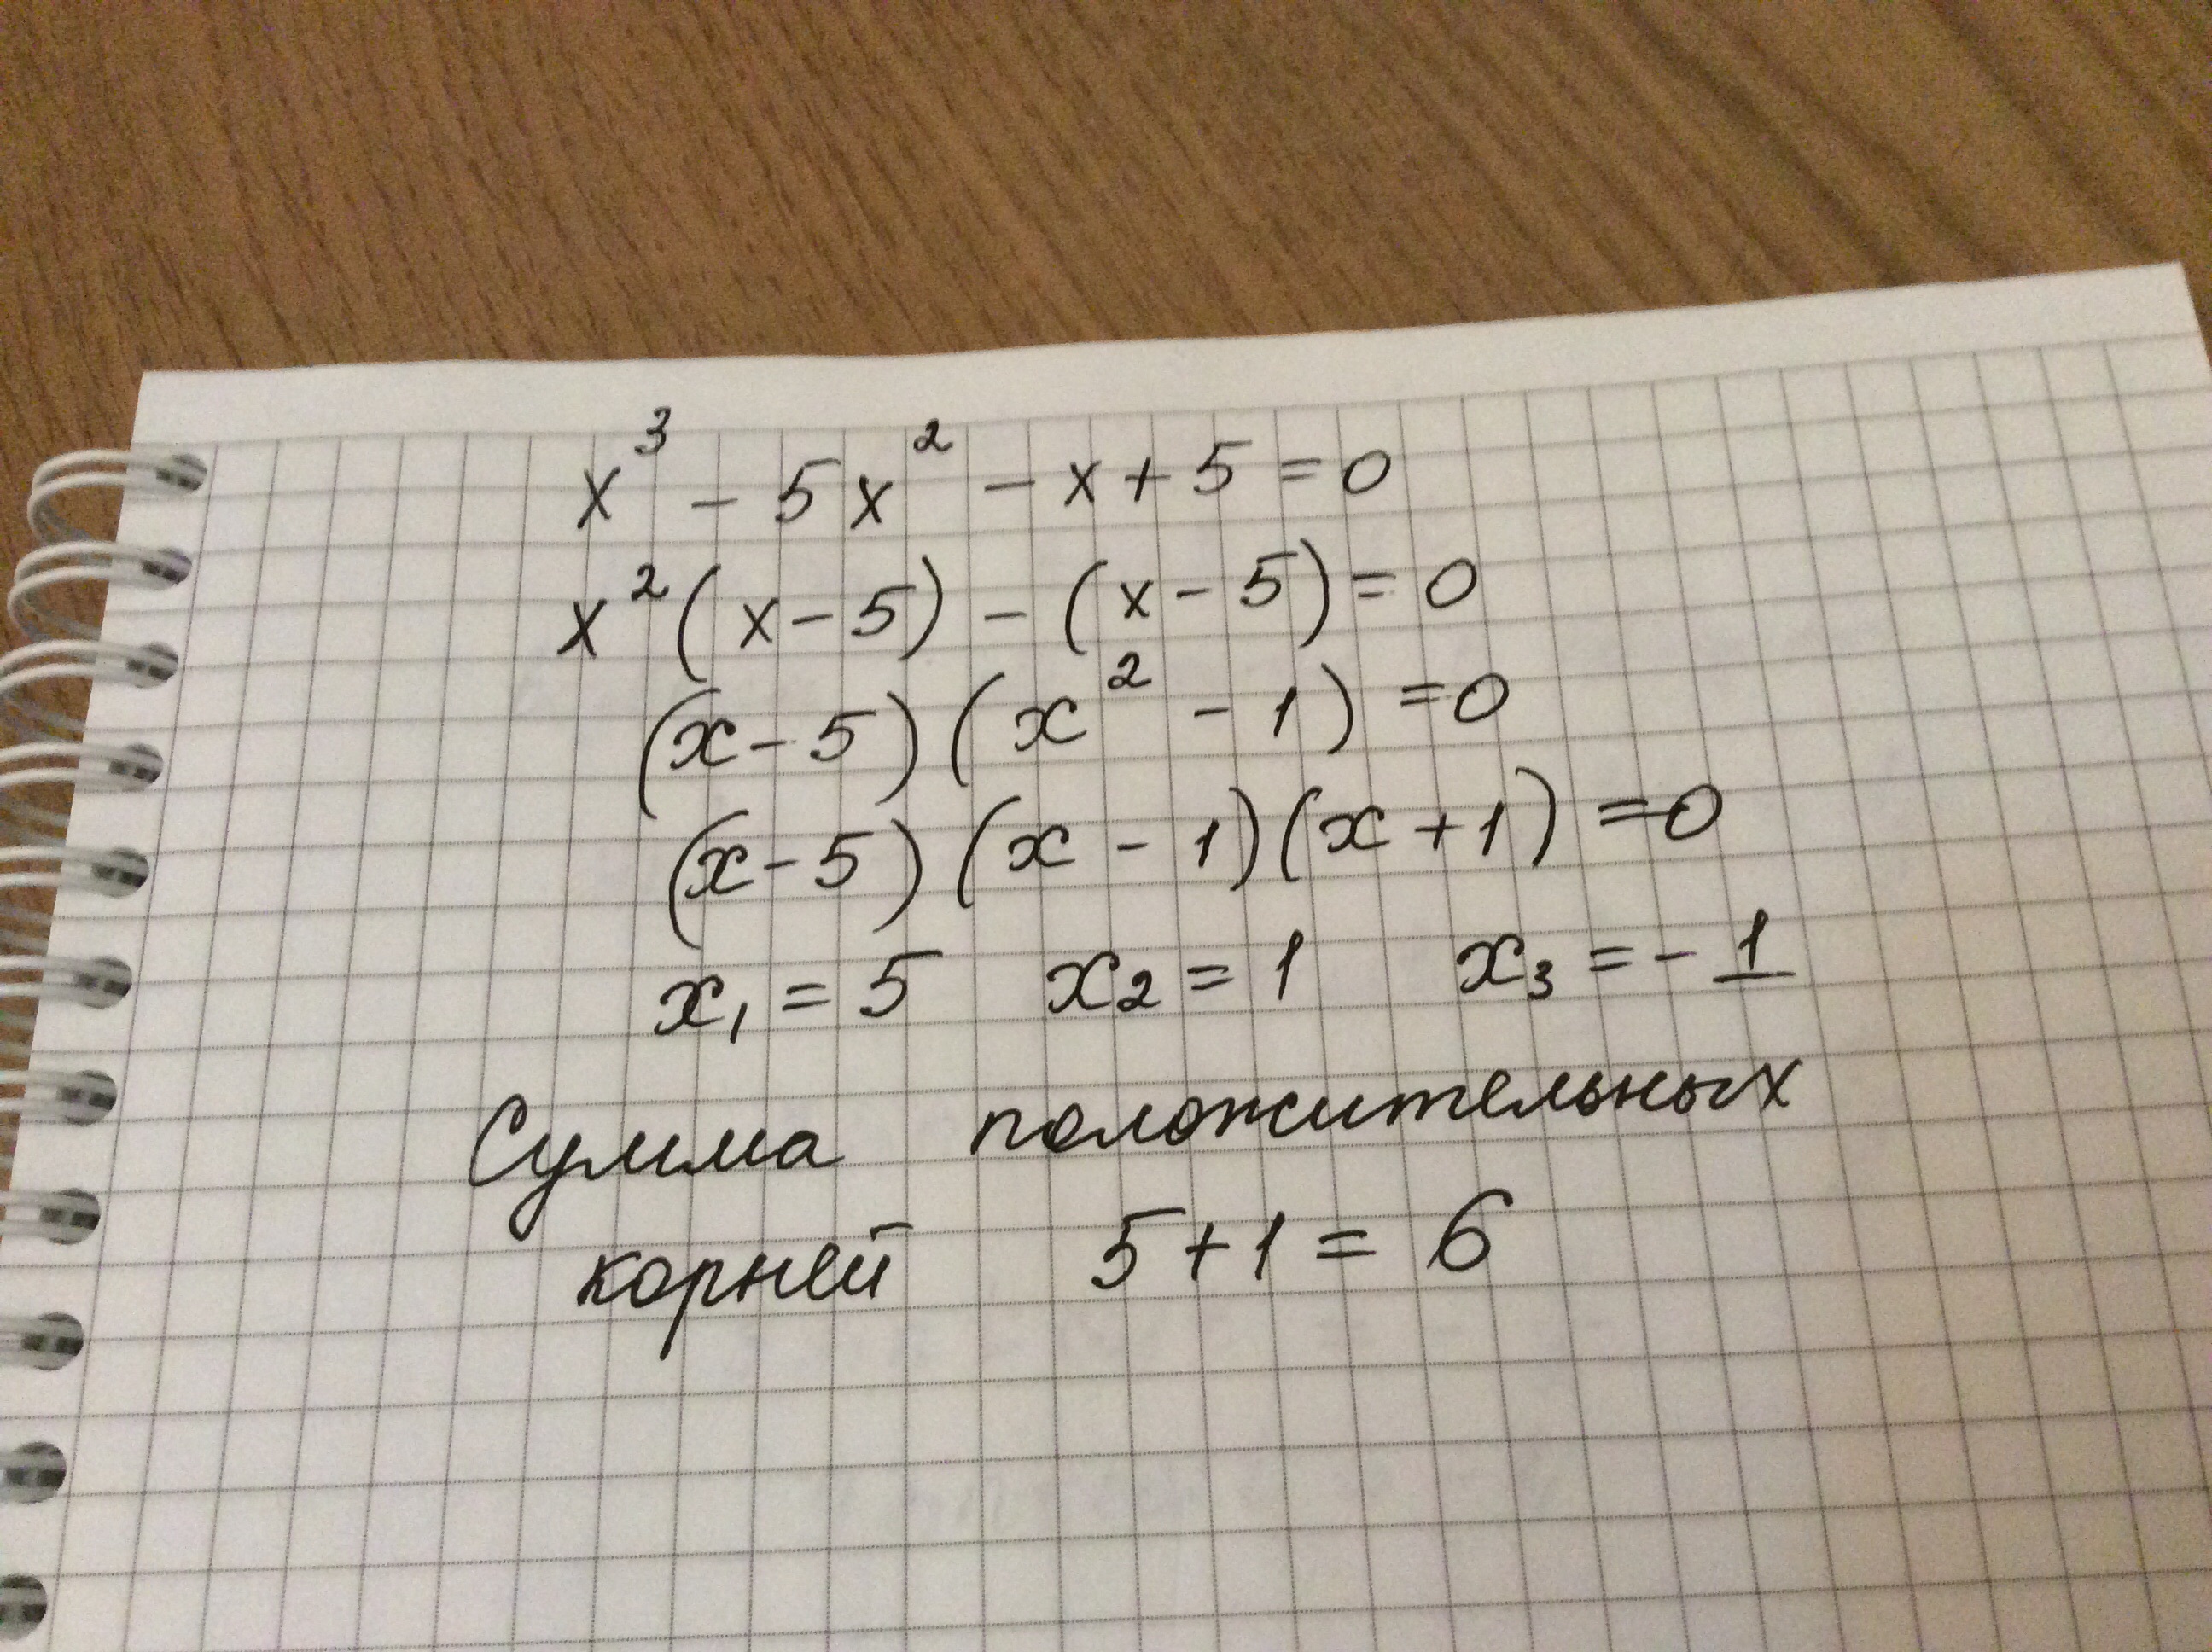 x³ - 5x² - x + 5 = 0
x²(x - 5) - (x - 5) = 0
(x - 5)(x² - 1) = 0
(x - 5)(x - 1)(x + 1) = 0
x₁ = 5 x₂ = 1 x₃ = - 1
Сумма положительных
корней 5 + 1 = 6